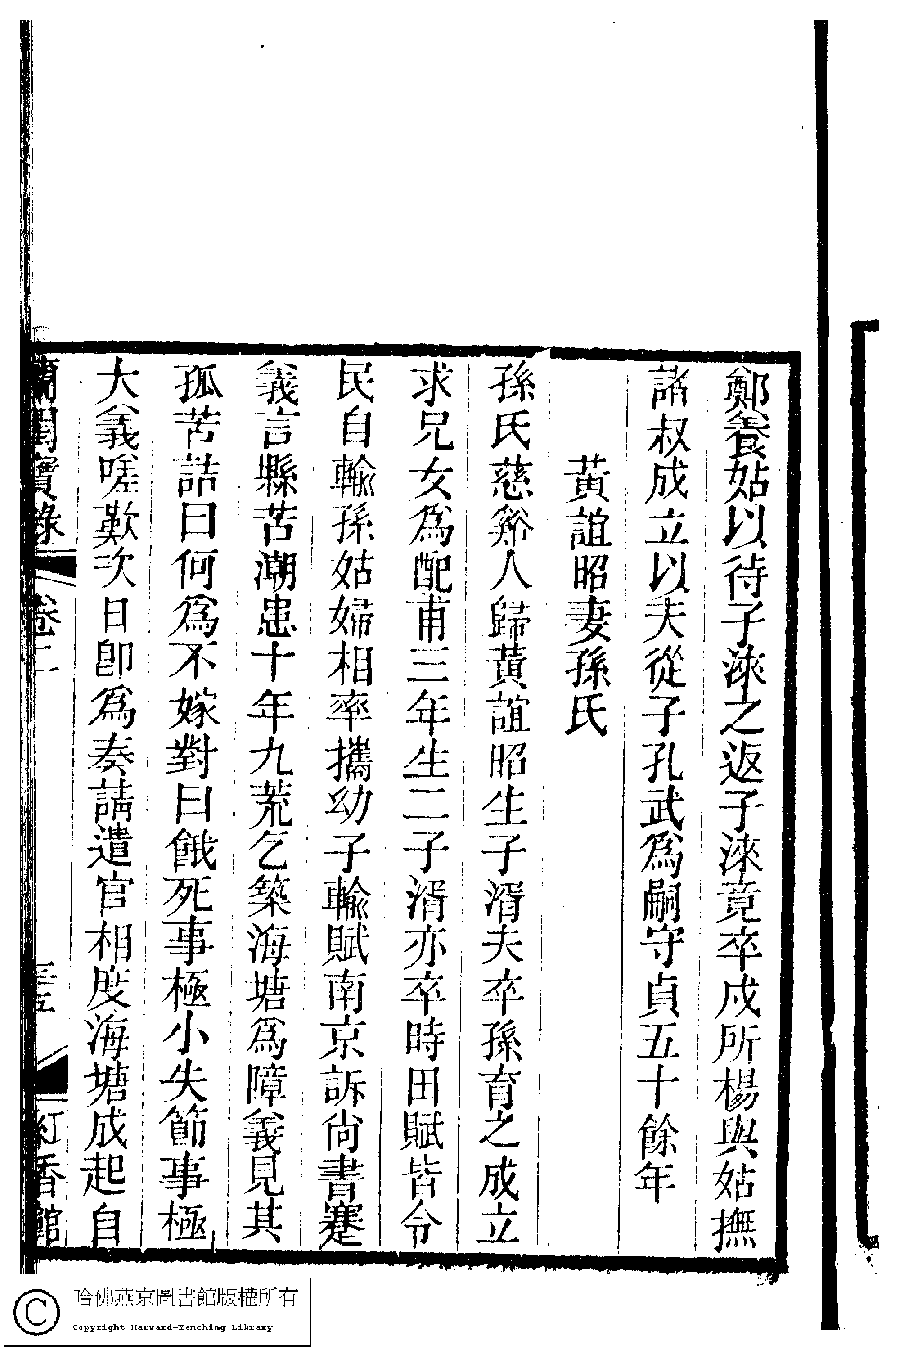 鄭養姑以待子淶之返子淶竟卒戍所楊與姑撫
諸叔成立以夫從子孔武爲嗣守貞五十餘年
黃誼昭妻孫氏
孫氏慈谿人歸黃誼昭生子湑夫卒孫育之成立
求兄女爲配甫三年生二子湑亦卒時田賦皆令
民自輸孫姑婦相率攜幼子輸賦南京訴尚書蹇
義言縣苦潮患十年九荒乞築海塘爲障義見其
孤苦詰曰何爲不嫁對曰餓死事極小失節事極
大義嗟歎次日卽爲奏請遣官相度海塘成起自
蘭閨寶錄 卷二 三五 紅香館
哈佛燕京圖書館版權所有
Copyright Harvard-Yenching Library